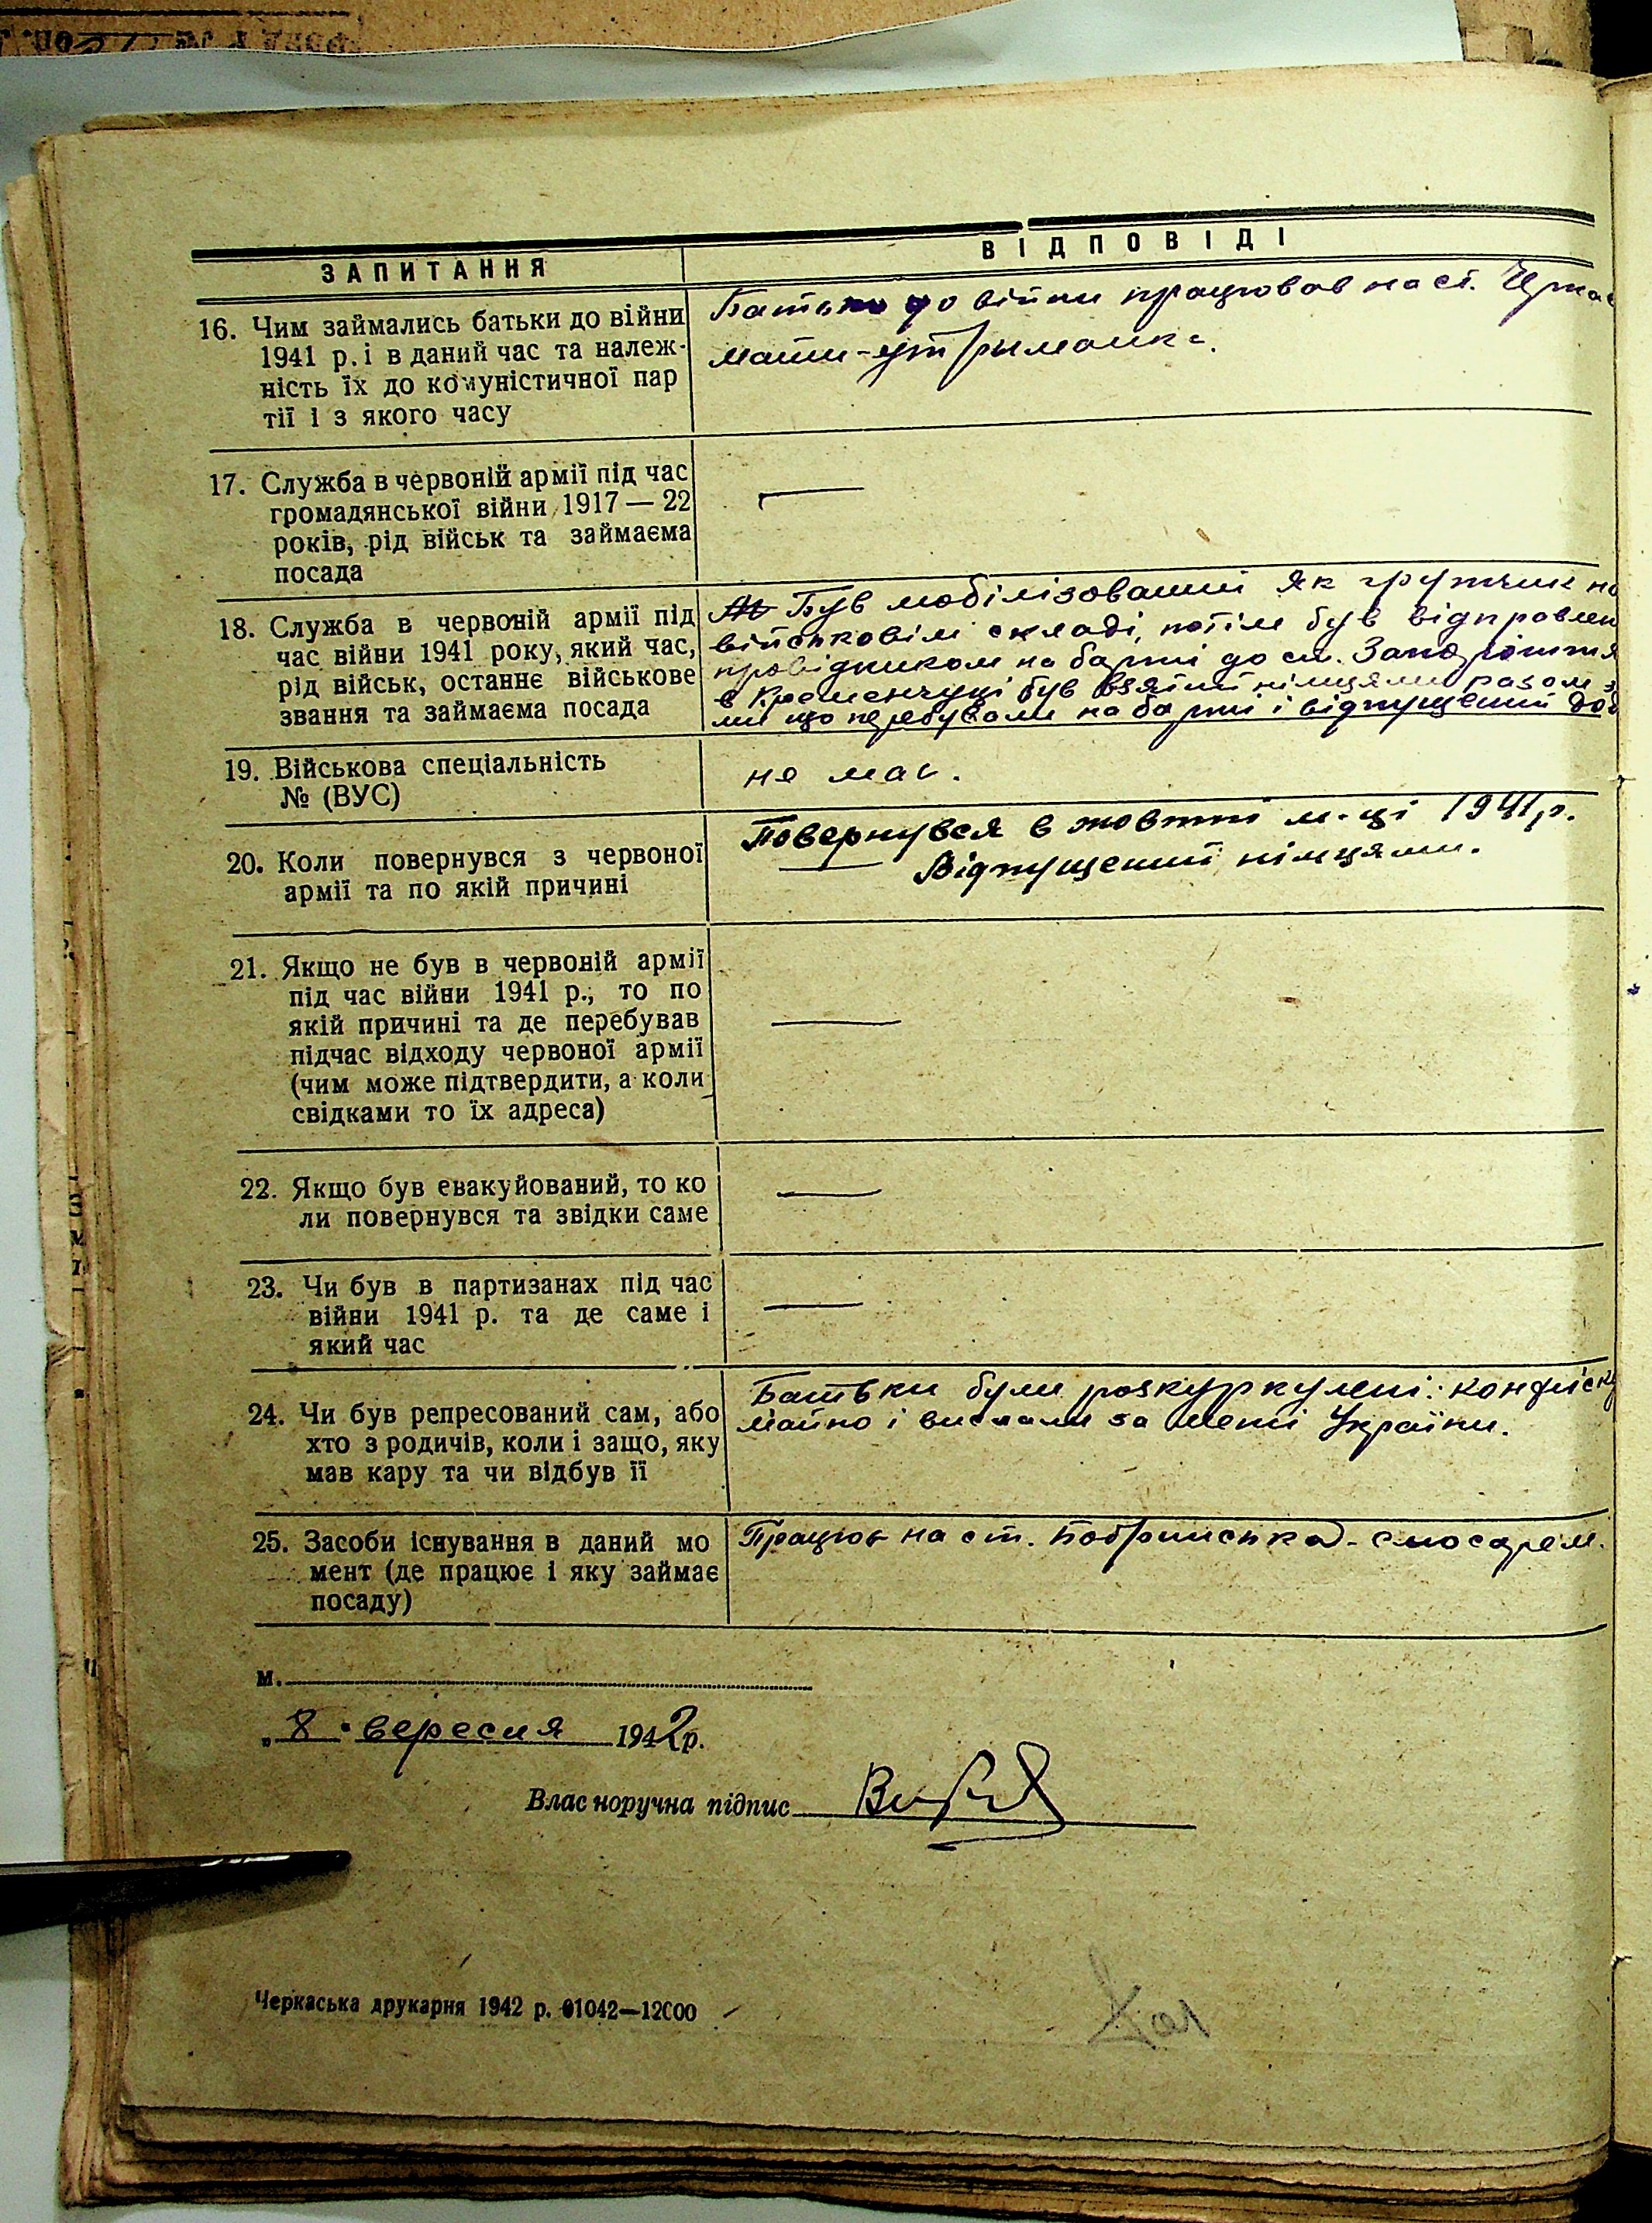 ЗАПИТАННЯ
ВІДПОВІДІ
16. Чим займались батьки до війни
1941 р. і в даний час та належ-
ність їх до комуністичної пар
тії і з якого часу
Батько до війни працював на ст. Черка
мати-утриманка.
17. Служба в червоній армії під час
громадянської війни 1917 — 22
років, рід військ та займаєма
посада
—
18. Служба в червоній армії під
час війни 1941 року, який час,
рід військ, останнє військове
звання та займаєма посада
Був мобілізований як грузчик на
військовім складі, потім був відправлен
провідником на баржі до ст. Запоріжжя
в Кременчуці був взятий німцями разом з
ми що перебували на баржі і відпущений до
19. Військова спеціальність
№ (ВУС)
не має.
20. Коли повернувся з червоної
армії та по якій причині
Повернувся в жовтні м-ці 1941 р.
— Відпущений німцями.
21. Якщо не був в червоній армії
під час війни 1941 р., то по
якій причині та де перебував
підчас відходу червоної армії
(чим може підтвердити, а коли
свідками то їх адреса)
—
22. Якщо був евакуйований, то ко
ли повернувся та звідки саме
—
23. Чи був в партизанах під час
війни 1941 р. та де саме і
який час
—
24. Чи був репресований сам, або
хто з родичів, коли і защо, яку
мав кару та чи відбув її
Батьки були розкуркулені: конфіск
майно і вислали за межі України.
25. Засоби існування в даний мо
мент (де працює і яку займає
посаду)
Працює на ст. Бобринська - слюсарем.
м.
„8" вересня 1942 р.
Власноручна підпис
Черкаська друкарня 1942 р. 01042—12000